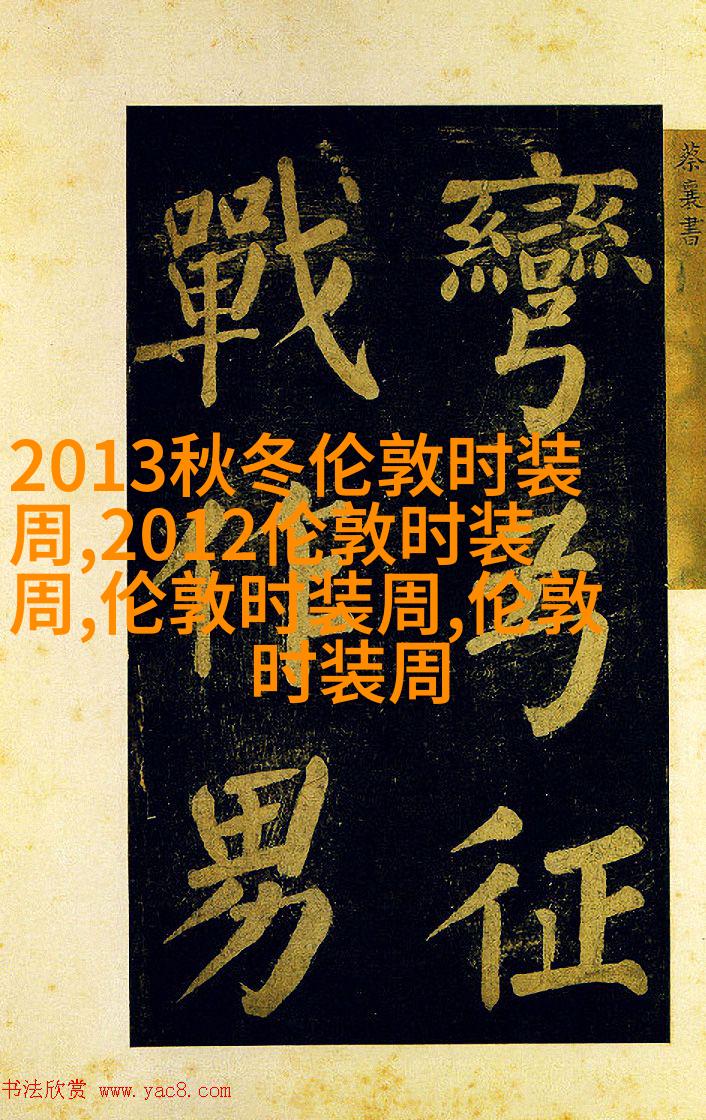 蔡襄書
彎弓征
戰作男
2013秋冬伦敦时装
周,2012伦敦时装
周,伦敦时装周,伦敦
时装周
书法欣赏 www.yac8.com